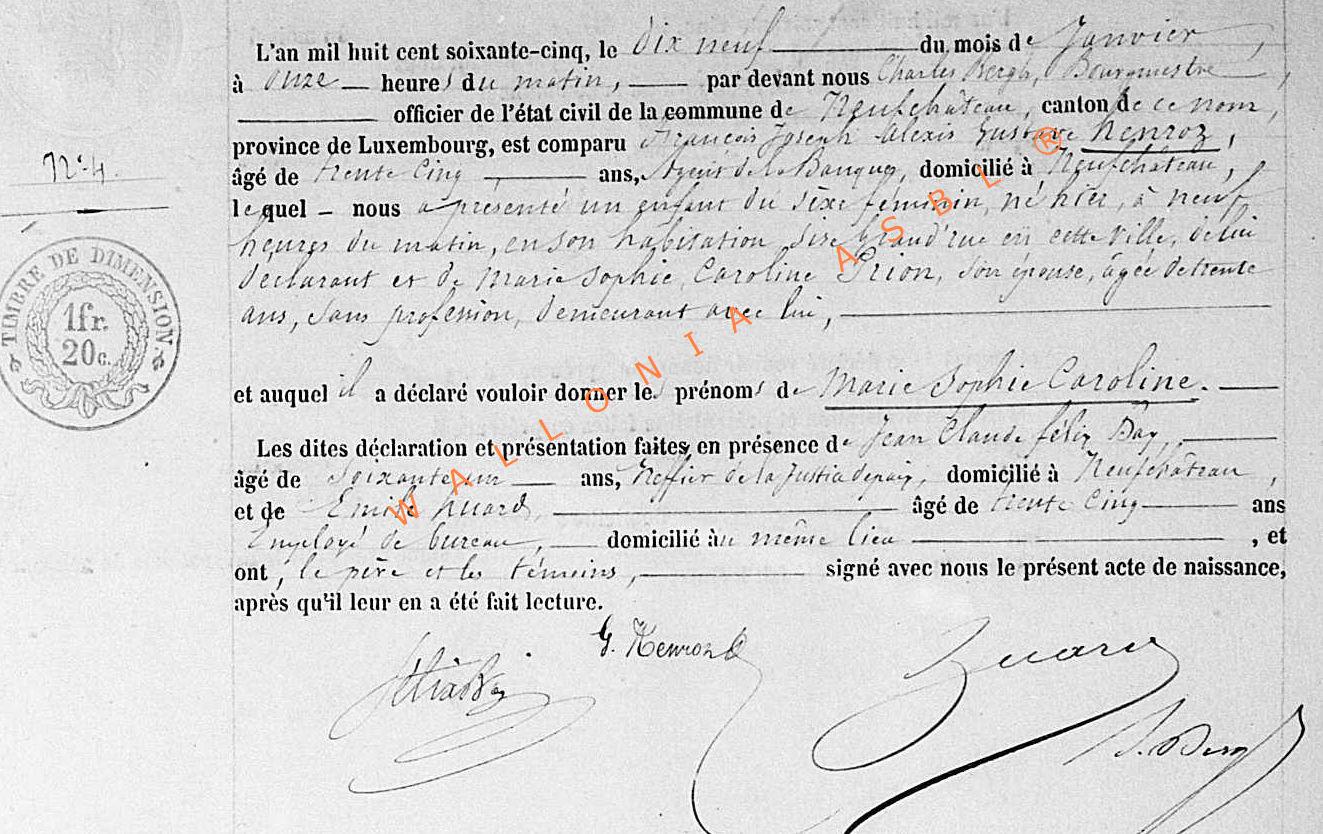 L'an mil huit cent soixante-cinq, le dix neuf du mois de Janvier,
à onze heures du matin, par devant nous Charles Bergh, Bourgmestre,
officier de l'état civil de la commune de Neufchâteau, canton de ce nom,
province de Luxembourg, est comparu François Joseph Alexis Gustave Henroz,
N° 4.
âgé de trente cinq ans, Agent de la Banque, domicilié à Neufchâteau,
lequel nous a présenté un enfant du sèxe féminin, né hier, à neuf
heures du matin, en son habitation sise Grand'rue en cette ville, de lui
déclarant et de Marie Sophie Caroline Prion, son épouse, âgée de trente
ans, sans profession, demeurant avec lui,
TIMBRE DE DIMENSION.
1 fr.
20 c.
et auquel il a déclaré vouloir donner les prénoms de Marie Sophie Caroline.
Les dites déclaration et présentation faites en présence de Jean Claude félix Day,
âgé de soixante un ans, Greffier de la Justice de paix, domicilié à Neufchâteau,
et de Emile huard, âgé de trente cinq ans
Employé de bureau, domicilié au même lieu, et
ont, le père et les témoins, signé avec nous le présent acte de naissance,
après qu'il leur en a été fait lecture.
G. Henroz
Huard
WALLONIA ASBL ®